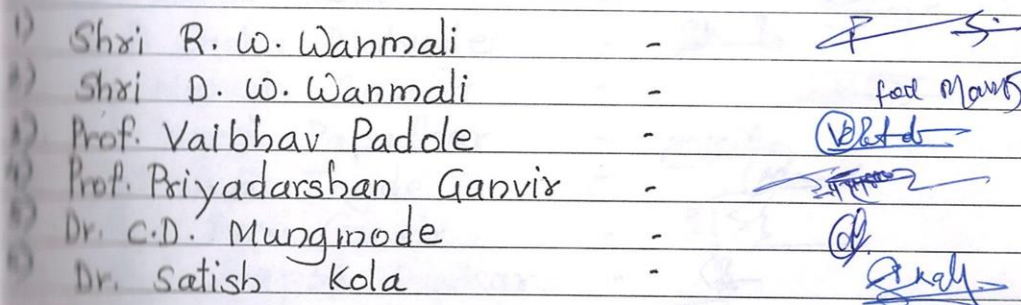 1) Shri R. W. Wanmali -
2) Shri D. W. Wanmali -
3) Prof. Vaibhav Padole -
4) Prof. Priyadarshan Ganvir -
5) Dr. C.D. Mungmode -
6) Dr. Satish Kola -